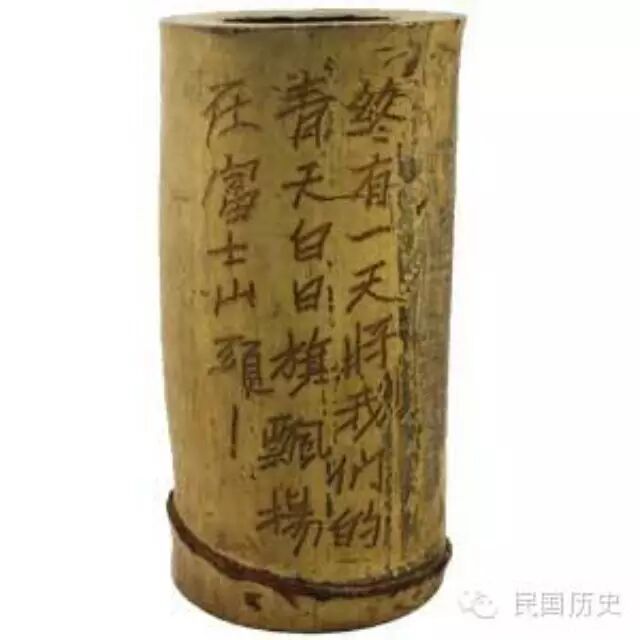 终有一天将我们的
青天白日旗飄揚
在富士山頭！
民国历史